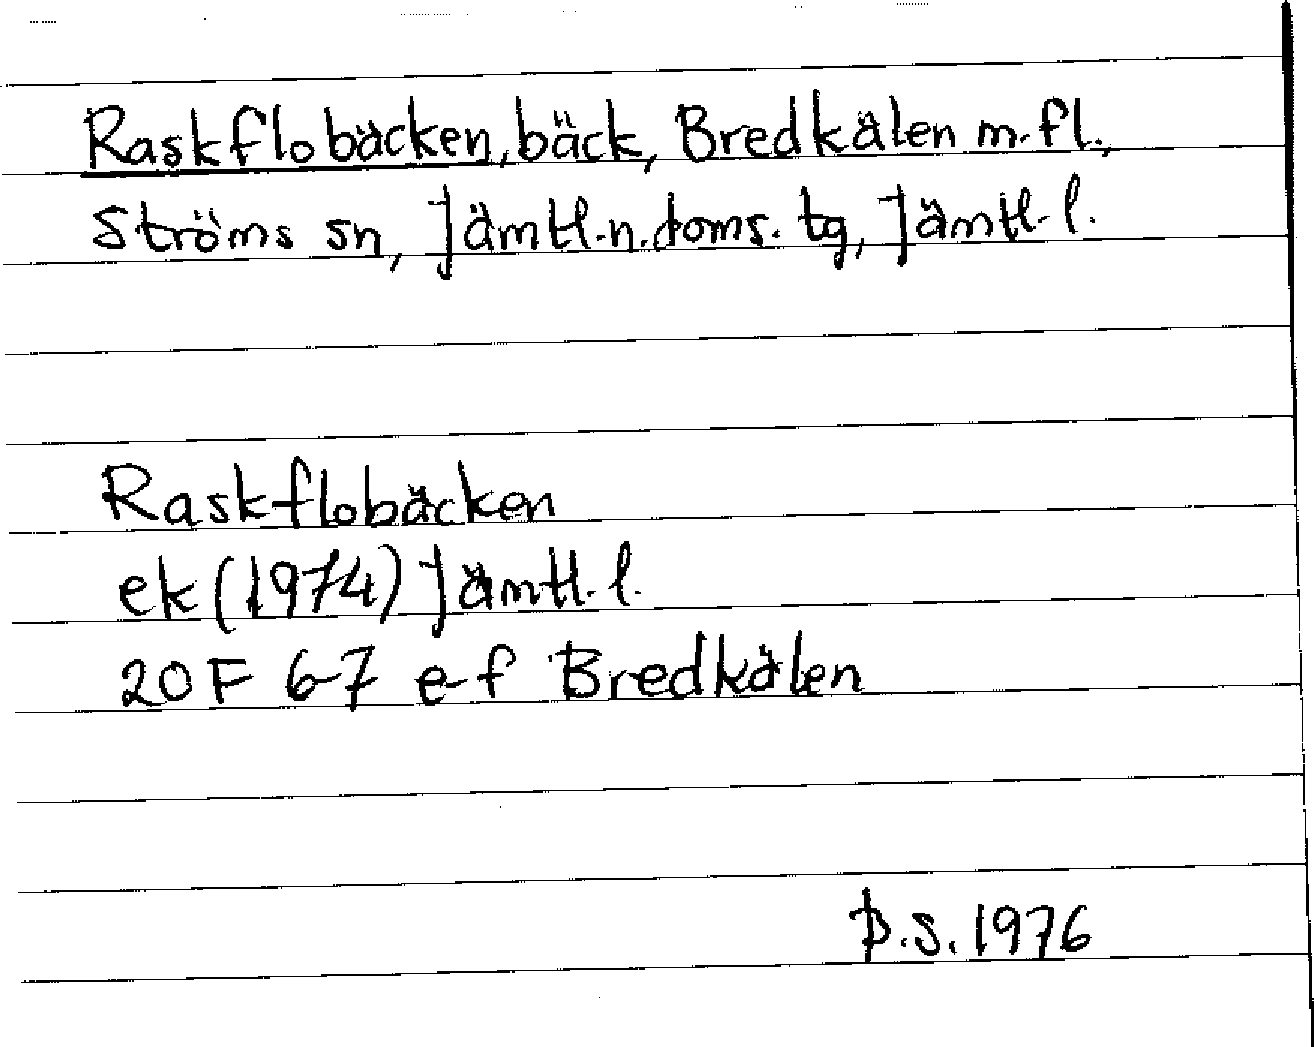 Raskflobäcken, bäck, Bredkälen m.fl.,
Ströms sn, Jämtl.n.doms.tg, Jämtl.l.
Raskflobäcken
ek (1974) Jämtl.l.
20F 6-7 e-f Bredkälen
Þ.S. 1976